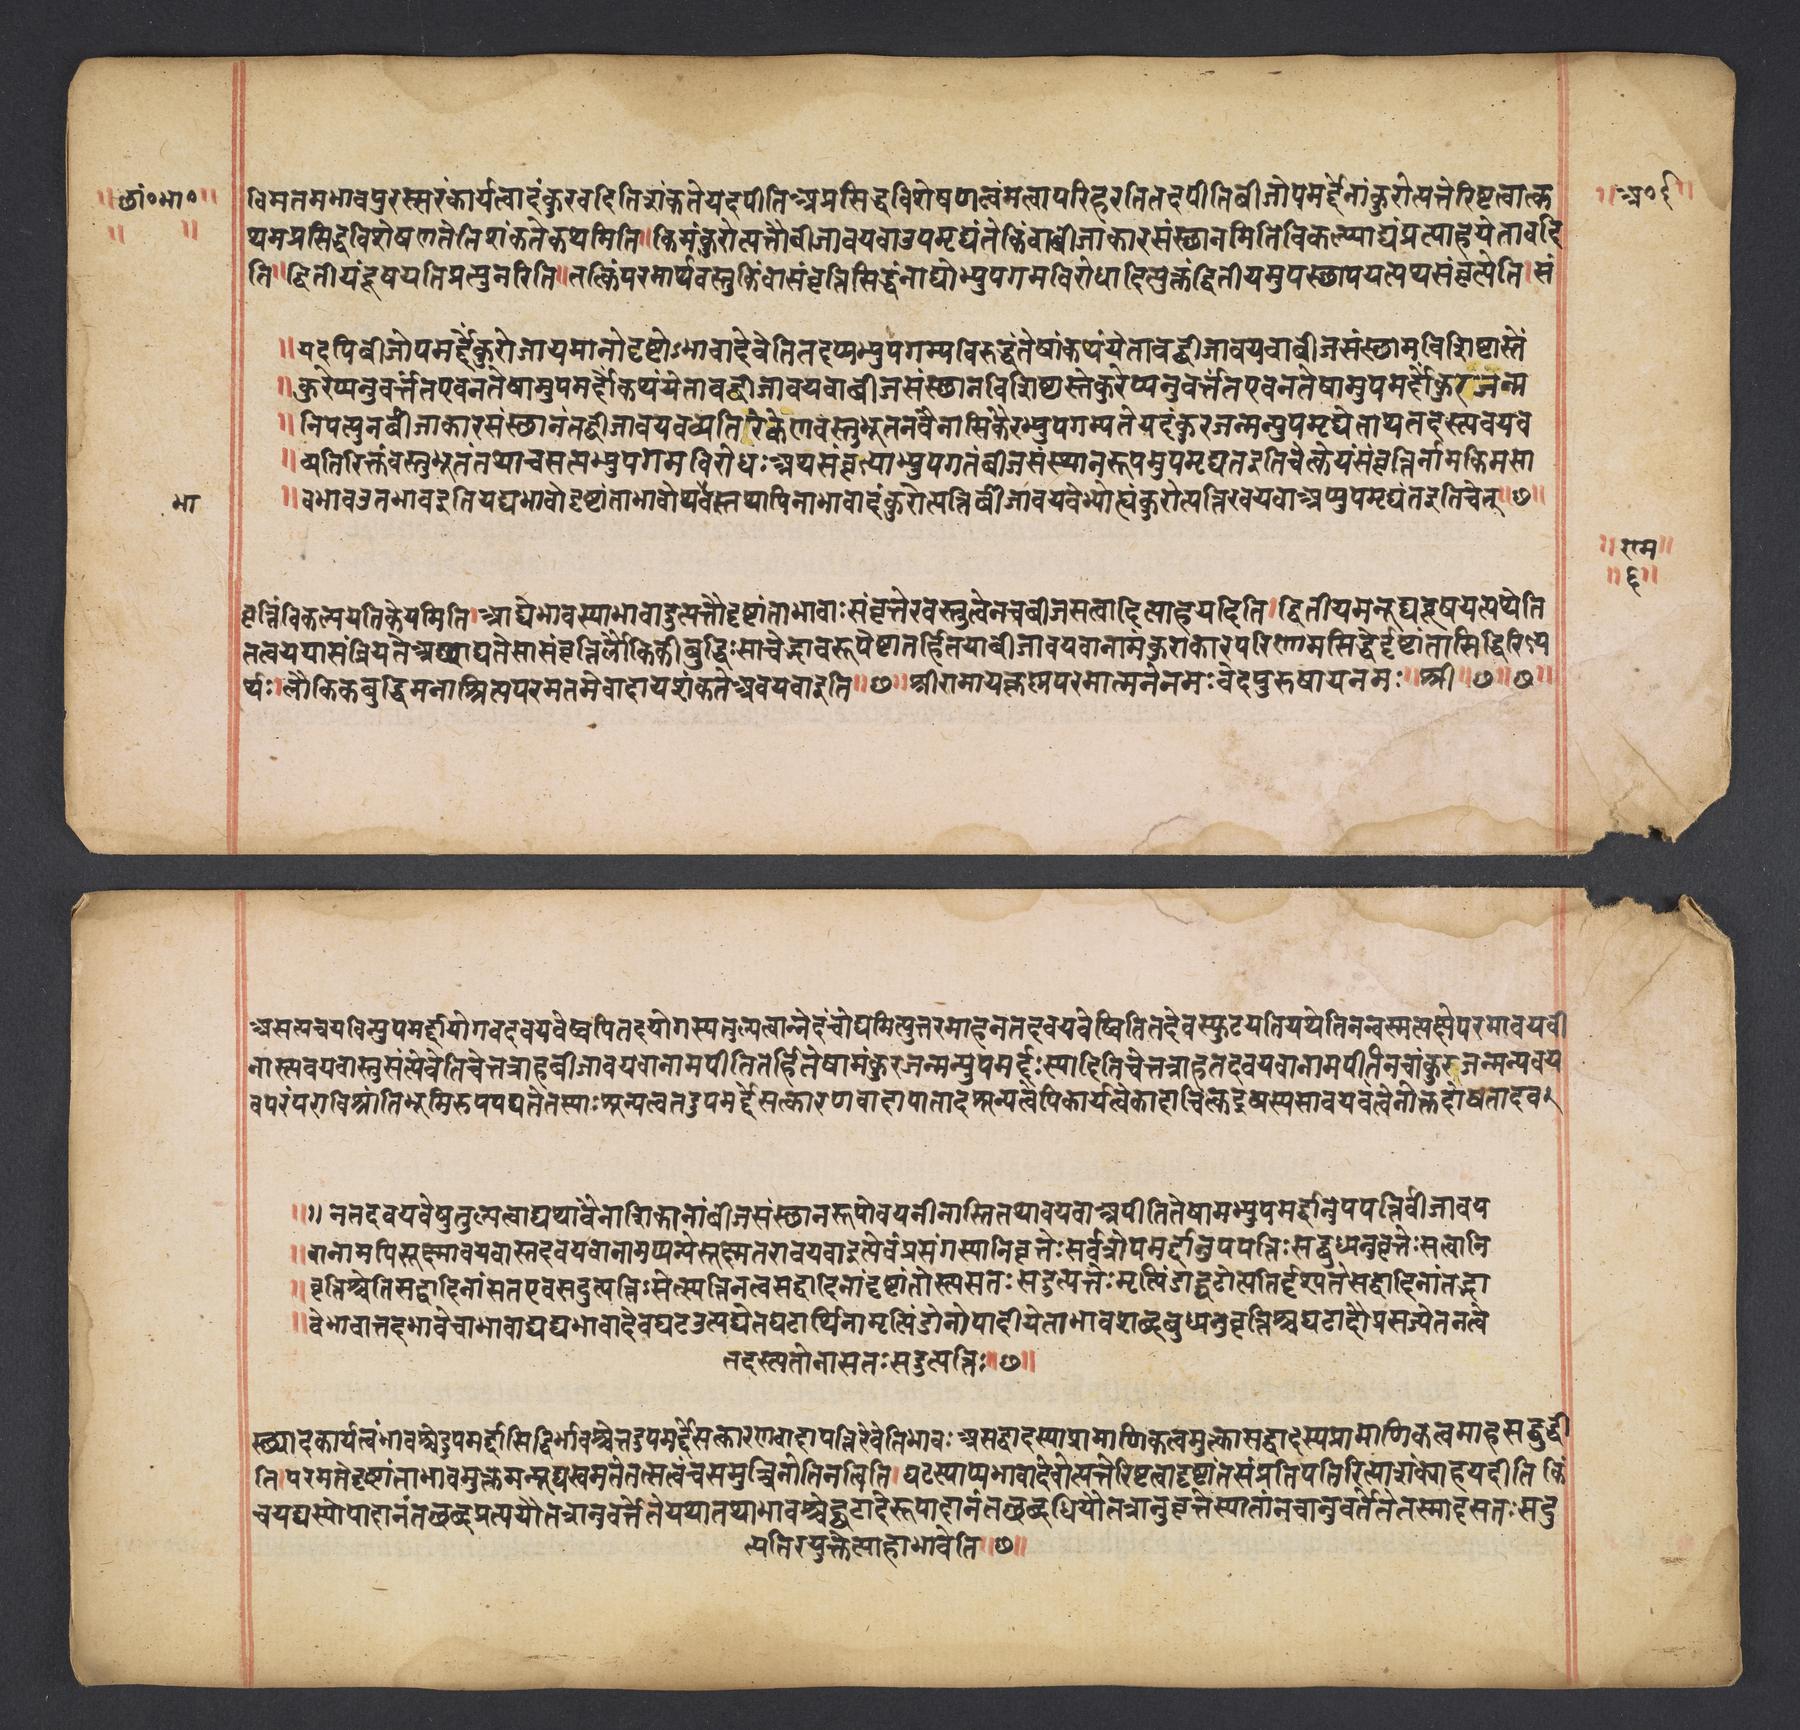 ॥छां॰भा॰॥
॥ ॥
॥अ॰६॥
विमतमभावपुरस्सरंकार्यत्वादंकुरवदितिशंकतेयदपीतिअप्रसिद्धविशेषणत्वंमत्वापरिहरतितदपीतिबीजोपमर्द्देनांकुरोत्पत्तेरिष्टत्वात्क
थमप्रसिद्धविशेषणतेतिशंकतेकथमिति॥किमंकुरोत्पत्तौबीजावयवाउपमृद्यंतेकिंवाबीजाकारसंस्छानमितिविकल्प्याद्यंप्रत्याहयेतावदि
ति॥द्वितीयंदूषयतिप्रत्युनरिति॥तत्किंपरमार्थवस्तुकिंवासंवृत्तिसिद्धंनाद्योभ्युपगमविरोधादित्युक्तंद्वितीयमुपस्छापयत्यथसंवृत्येति।सं
॥यदपिबीजोपमर्द्देंकुरोजायमानोदृष्टोऽभावादेवेतितदप्यभ्युपगम्यविरुद्धंतेषांकथंयेतावद्बीजावयवाबीजसंस्छामविशिष्टास्तें
॥कुरेप्यनुवर्त्तंतएवनतेषामुपमर्दोकथंयेतावद्बीजावयवाबीजसंस्छानविशिष्टास्तेंकुरेप्यनुवर्त्तंतएवनतेषामुपमर्दोंकुरजन्म
॥निपत्पुनर्बीजाकारसंस्छानंतद्बीजावयवव्यतिरिक्केणवस्तुभूतनवैनासिकैरभ्युपगम्यतेयदंकुरजन्मन्युपमृद्येताथतदस्त्यवयव
॥व्यतिरिक्तंवस्तुभूतंतथाचसत्यभ्युपगमविरोधःअथसंवृत्याभ्युपगतंबीजसंस्थानरूपमुपमृद्यतइतिचेत्केयंसंवृत्तिर्नामकिमसा
॥वभावउतभावइतियद्यभावोदृष्टांताभावोथर्वस्तथापिनाभावादंकुरोत्पत्तिर्बीजावयवेभ्योत्यंकुरोत्पत्तिरवयवाअप्युपमृद्यंतइतिचेत्॥७॥
भा
॥राम॥
॥६॥
वृत्तिंविकल्पयतिकेयमिति।आद्येभावस्याभावादुत्पत्तौदृष्टांताभावाःसंवृत्तेरवस्तुत्वेनचबीजसत्वादित्याहयदिति।द्वितीयमनूद्यदूषयत्यथेति
तत्वययासंव्रियतेआछाद्यतेसासंवृत्तिर्लौकिकीबुद्धिःसाचेद्भावरूपेष्टातर्हितयाबीजावयवानामंकुराकारपरिणामसिद्धेर्दृष्टांतासिद्धिरित्य
र्थः।लौकिकबुद्धिमनाश्रित्यपरमतमेवादायशंकतेअवयवाइति॥७॥श्रीरामायब्रह्मणेपरमात्मनेनमःवेदपुरुषायनमः॥श्री॥७॥७॥
असत्यवयविन्युपमर्दायोगवदवयवेष्वपितदयोगस्यतुल्यत्वान्नेदंचोद्यमित्युत्तरमाहनतदवयवेष्वितितदेवस्फुटयतियथेतिनन्वस्मत्पक्षेपरमावयवी
नास्त्यवयवास्तुसंत्येवेतिचेत्तत्राहबीजावयवानामपीतितर्हितेषामंकुरजन्मन्युपमर्द्दःस्यादितिचेत्तत्राहतदवयवानामपीतिनचांकुरजन्मन्यवय
वपरंपराविश्रांतिभूमिरुपपद्यतेतस्याःअन्यत्वतदुपमर्द्देसत्कारणवादापातादअन्यत्वेपिकार्यत्वेकादाचित्कद्रव्यस्यसावयवत्वेनोक्तदोषतादवः
॥॥नतदवयवेषुतुल्यत्वाद्यथावैनाशिकानांबीजसंस्छानरूपोवयवीनास्तितथावयवाअपीतितेषामभ्युपमर्दानुपपत्तिर्बीजावय
॥वानामपिसूक्ष्मावयवास्तदवयवानामप्यन्येसूक्ष्मतरावयवाइत्येवंप्रसंगस्यानिवृत्तेःसर्वत्रोपमर्दानुपपत्तिःसद्बुध्यनुवृत्तेःसत्वानि
॥वृत्तिश्चेतिसद्वादिनांसतएवसदुत्पत्तिःसेत्स्यतिनत्वसद्वादिनांदृष्टांतोस्त्यसतःसदुत्पत्तेःमृत्पिंडाद्घटोत्पतिर्दृश्यतेसद्वादिनांतद्भा
॥वेभावात्तदभावेचाभावाद्यद्यभावादेवघटउत्पद्येतघटार्थिनामृत्पिंडोनोपादीयेताभावशब्दबुध्यनुवृत्तिश्चघटादौप्रसज्येतनत्वे
तदस्त्यतोनासतःसदुत्पत्तिः॥७॥
स्छ्यादकार्यत्वंभावश्चेदुपमर्द्दासिद्धिर्भावश्चेत्तदुपमर्द्देसत्कारणवादापत्तिरेवेतिभावःअसद्वादस्याप्रामाणिकत्वमुक्त्वासद्वादस्यप्रामाणिकत्वमाहसद्बुद्धी
ति।परमतेदृष्टांताभावमुक्तमनूद्यस्वमतेतत्सत्वंचसमुच्चिनोतिनत्विति।घटस्याप्यभावादेवोत्पत्तेरिष्टत्वादृष्टांतसंप्रतिपतिरित्याशंक्याहयदीतिकिं
चयद्यस्योपादानंतछब्दप्रत्ययौतत्रानुवर्त्तेतेयथातथाभावश्चेद्घटादेरूपादानंतछब्दधियौतत्रानुवृत्तेस्यातांनचानुवर्तेतेतस्मादसतःसदु
त्पतिरयुक्तेत्याहाभावेति॥७॥